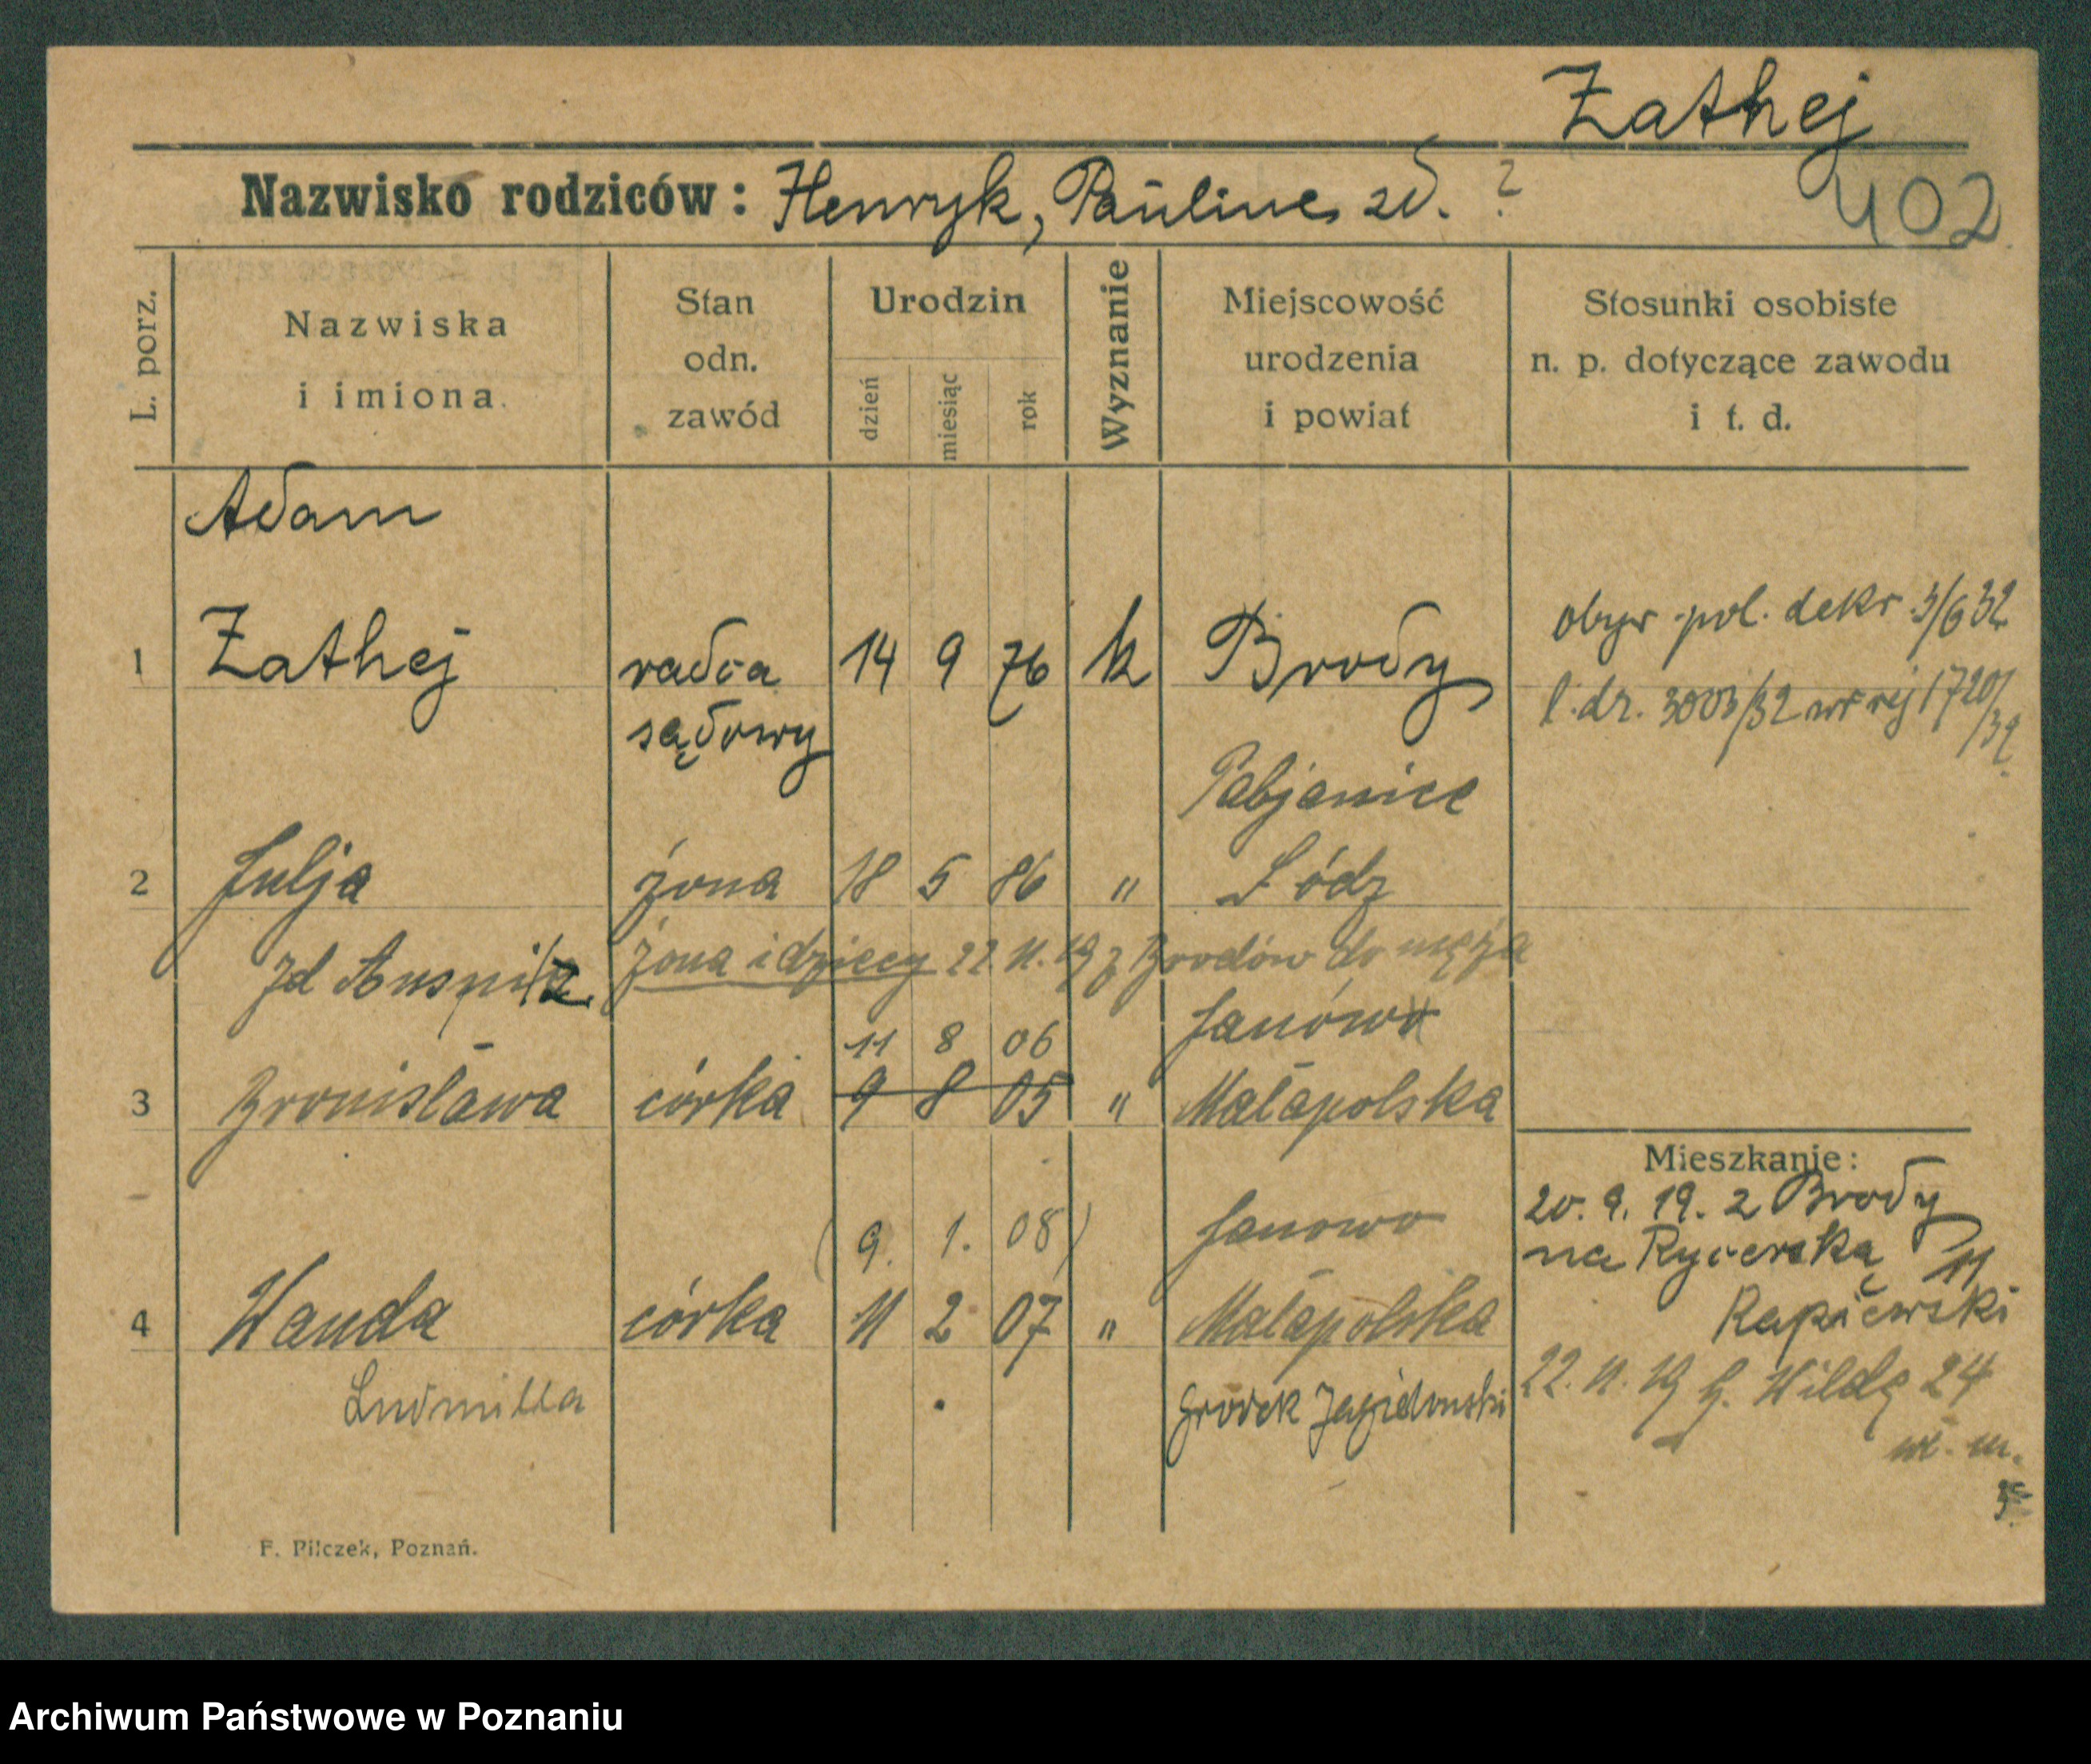 Zathej
Nazwisko rodziców: Henryk, Pauline zd. ?
402
L. porz.
Nazwiska
i imiona.
Stan
odn.
zawód
Urodzin
dzień
miesiąc
rok
Wyznanie
Miejscowość
urodzenia
i powiat
Stosunki osobiste
n. p. dotyczące zawodu
i t. d.
Adam
1 Zathej radca 14 9 76 k Brody
sądowy
obyw. pol. dekr. 3/6 32
l. dz. 3003/32 nr rej 1720/
/32
Pabjanice
2 Julja żona 18 5 86 " Łódz
zd Auspitz żona i dziecy 22. 11. 19 z Brodów do męża
11 8 06 Janówo
3 Bronisława córka 9 8 05 " Małapolska
Mieszkanie:
20. 9. 19. z Brody
na Rycerska 11
(9. 1. 08) Janowo
4 Wanda córka 11 2 07 " Małapolska
Ludmilla Grodek Jagielonski
22. 11. 19 G. Wildę 24
wł. m.
F. Pilczek, Poznań.
Archiwum Państwowe w Poznaniu